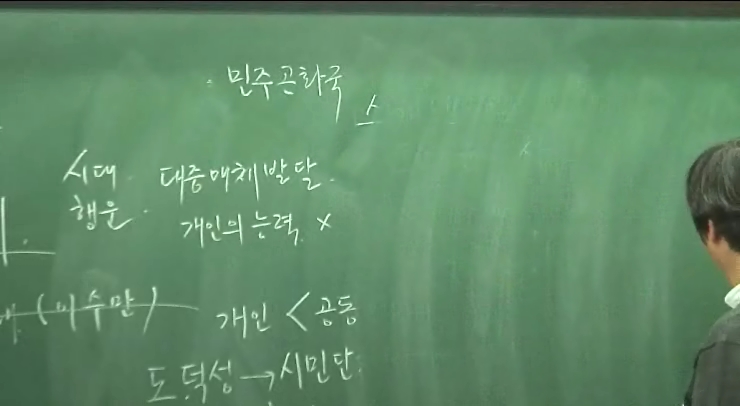 민주곤화국
시대 대중매체발달.
행운. 개인의능력. X
(이수만)
개인 < 공동
도덕성 → 시민단